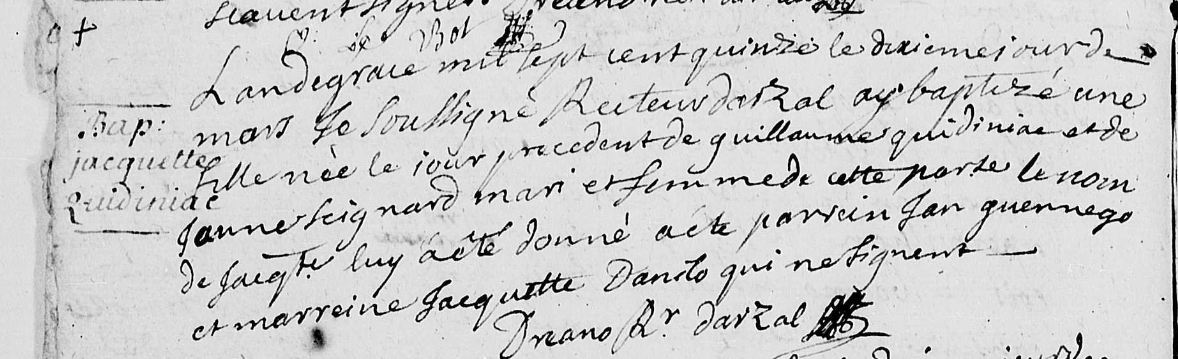 scavent signer
P. le Bot
L'an de grace mil sept cent quinze le dixieme jour de
mars Je Soussigné Recteur darzal ay baptizé une
Bap:
jacquette
Quidiniac
fille née le jour precedent de guillaume quidiniac et de
Janne seignard mari et femme de cette parse le nom
de Jacqte luy a été donné a éte parrein Jan guennego
et marreine Jacquette Danilo qui ne signent
Dreano Rr darzal